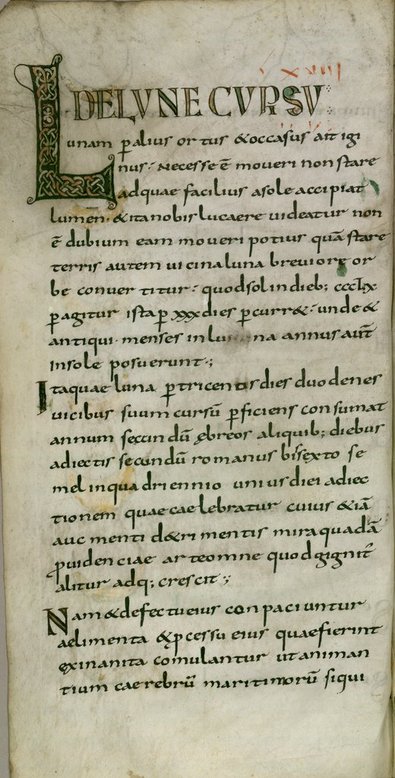 DE LUNE CURSU
Lunam p alius ortus & occasus ait igi
nus. Necesse ē moveri non stare
ad quae facilius a sole accipiat
lumen. & ita nobis lucaere uideatur non
ē dubium eam moueri potius quā stare
terris autem uicina luna breuiore or
be conuertitur. quod sol in dieb; ccclx
pagitur ista p xxx dies pcurr&. unde &
antiqui. menses in luna annus aūt
in sole posuerunt.;
Itaquae luna p tricentis dies duodenes
uicibus suum cursū pficiens consumat
annum secundū ebreos aliquib; diebus
adiectis secundū romanus bisexto se
mel in quadriennio unius diei adiec
tionem quae caelebratur cuius & iā
aucmenti d&rimentis mira quadā
prouidenciae arte omne quod gignit
alitur adq; crescit.;
Nam & defectu eius conpaciuntur
aelimenta & pcessu eius quae fierint
exinanita comulantur ut animan
tium caerebrū maritimorū siqui